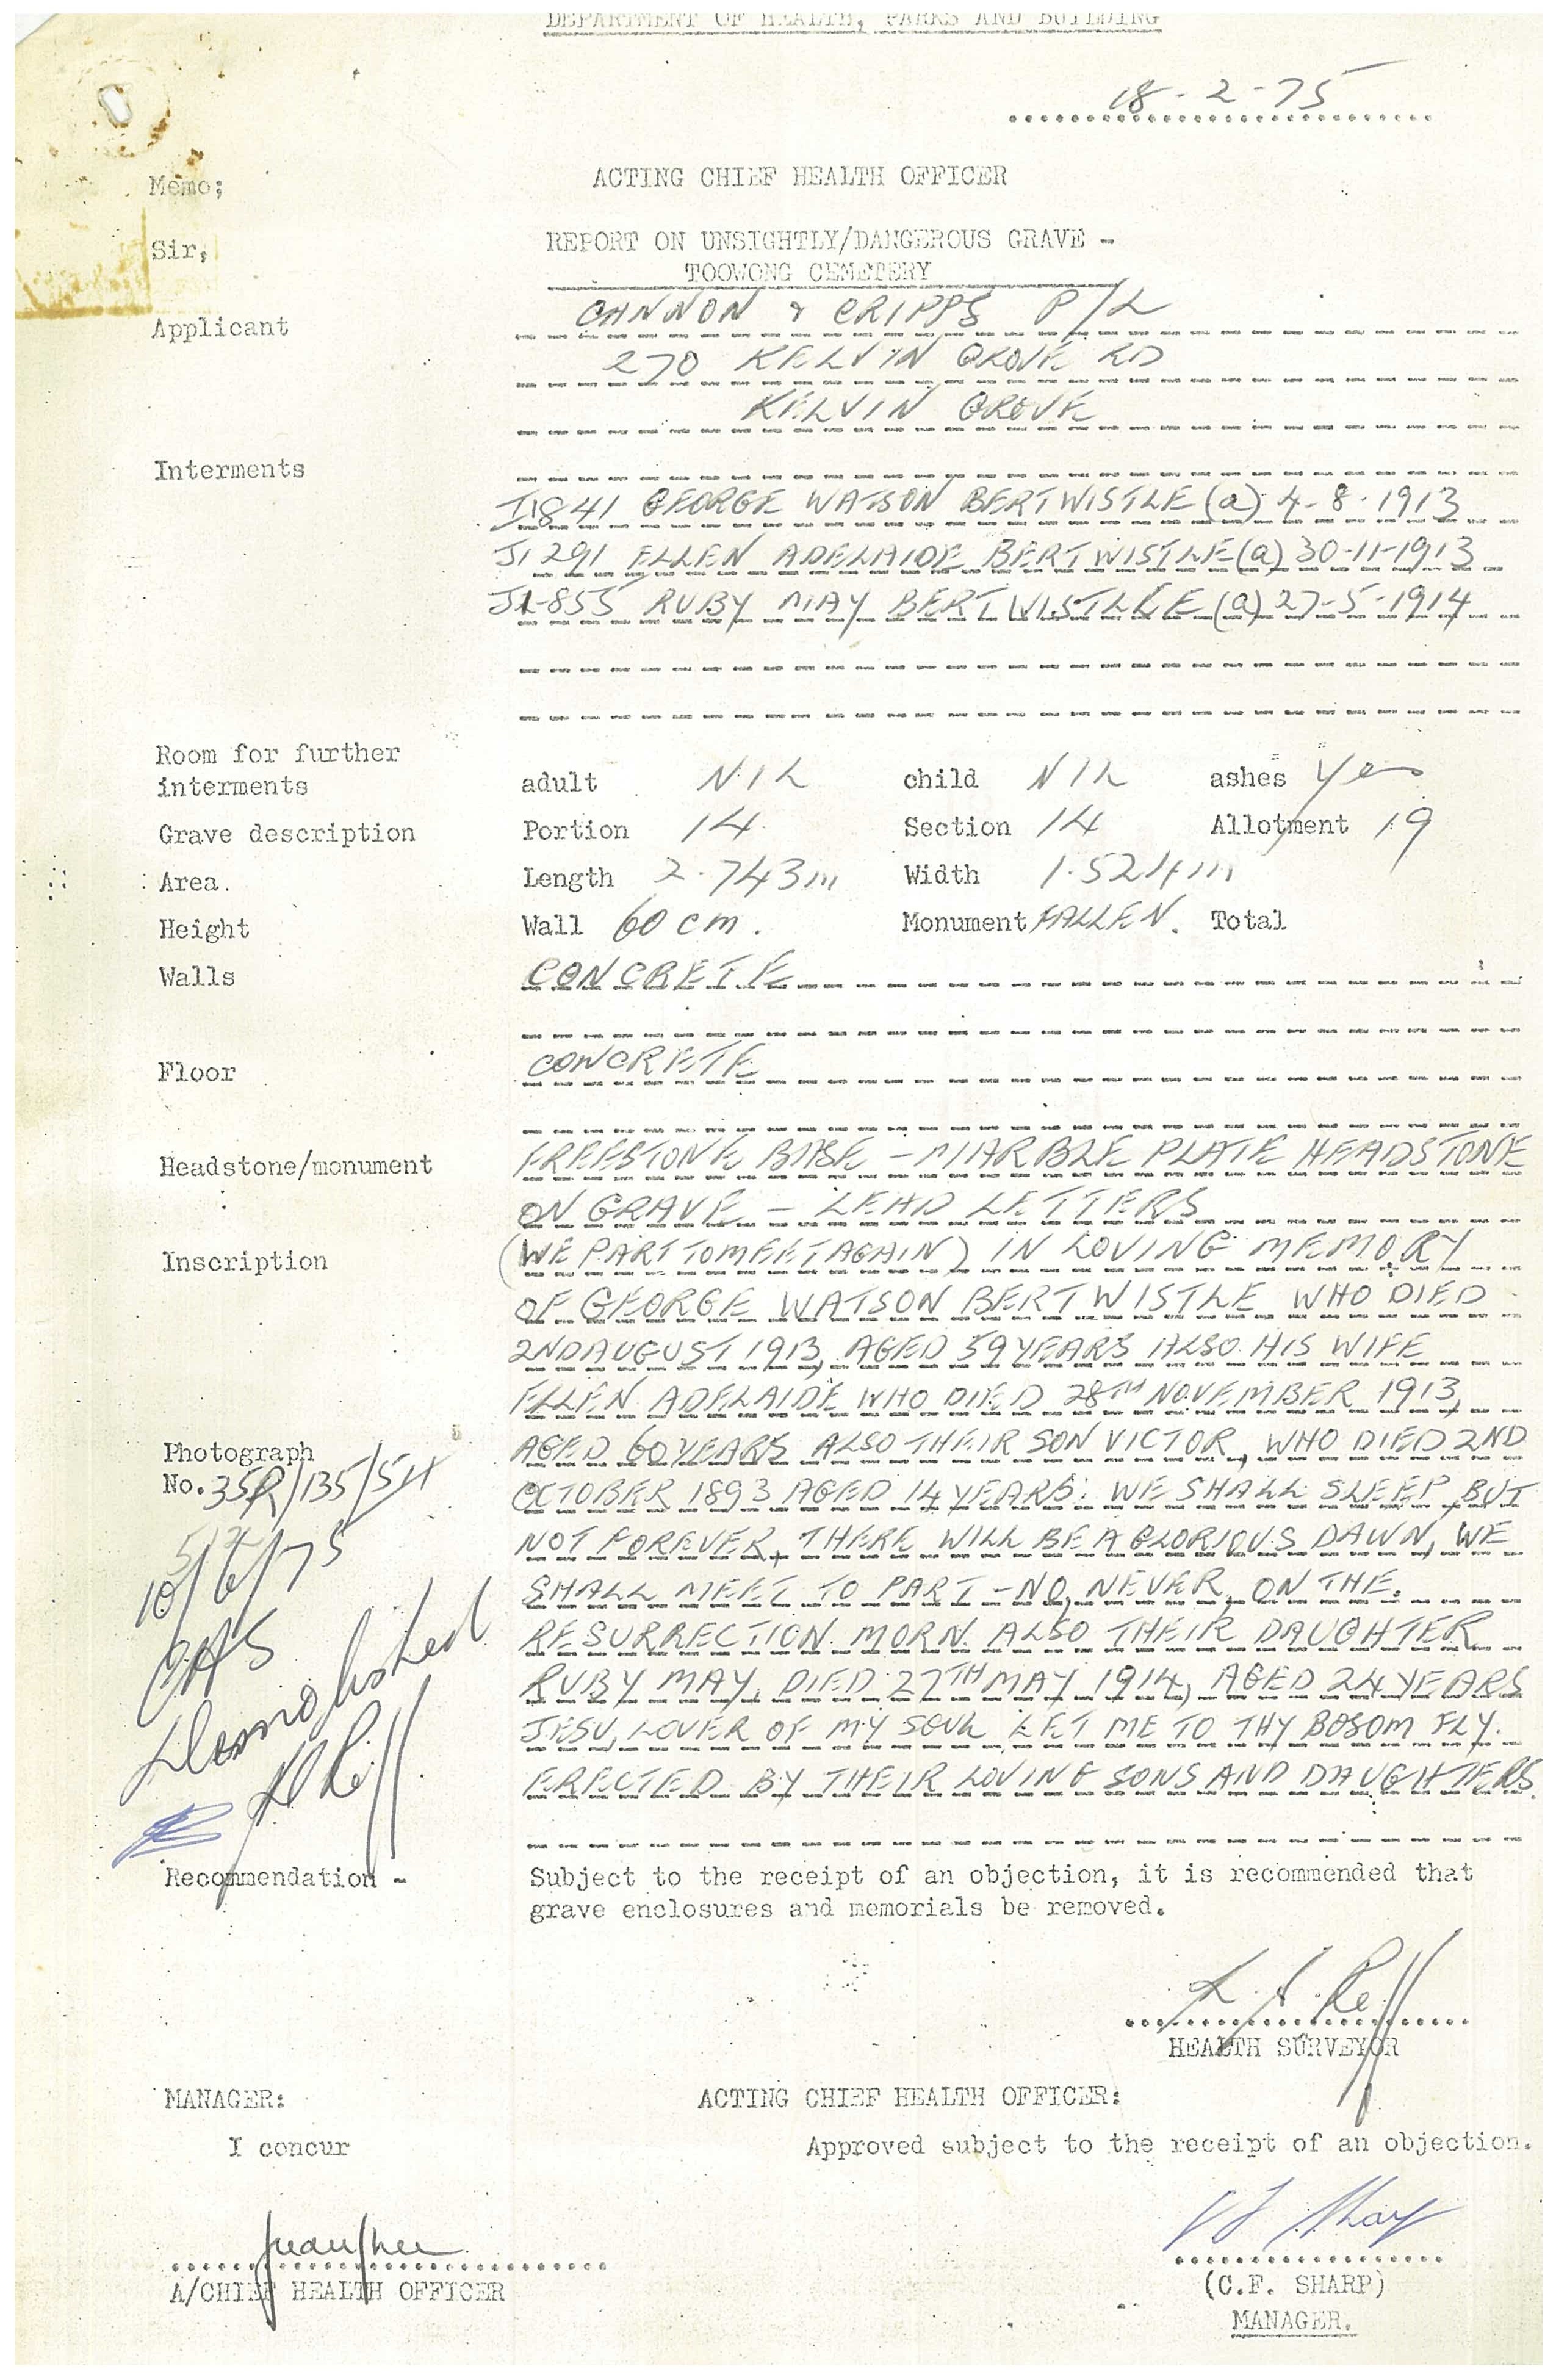 DEPARTMENT OF HEALTH, PARKS AND BUILDING
18-2-75
Memo;
ACTING CHIEF HEALTH OFFICER
Sir,
REPORT ON UNSIGHTLY/DANGEROUS GRAVE -
TOOWONG CEMETERY
Applicant
CANNON & CRIPPS P/L
270 KELVIN GROVE RD
KELVIN GROVE
Interments
I1841 GEORGE WATSON BERTWISTLE (a) 4-8-1913
J1291 ELLEN ADELAIDE BERTWISTLE (a) 30-11-1913
J1-855 RUBY MAY BERTWISTLE (a) 27-5-1914
Room for further
interments adult NIL child NIL ashes Yes
Grave description Portion 14 Section 14 Allotment 19
Area. Length 2.743m Width 1.524m
Height Wall 60 cm. Monument FALLEN. Total
Walls CONCRETE
Floor CONCRETE
Headstone/monument FREESTONE BASE - MARBLE PLATE HEADSTONE
ON GRAVE - LEAD LETTERS
Inscription (WE PART TO MEET AGAIN) IN LOVING MEMORY
OF GEORGE WATSON BERTWISTLE WHO DIED
2ND AUGUST 1913, AGED 59 YEARS ALSO HIS WIFE
ELLEN ADELAIDE WHO DIED 28TH NOVEMBER 1913,
AGED 60 YEARS ALSO THEIR SON VICTOR, WHO DIED 2ND
OCTOBER 1893 AGED 14 YEARS. WE SHALL SLEEP, BUT
NOT FOREVER, THERE WILL BE A GLORIOUS DAWN, WE
SHALL MEET TO PART - NO, NEVER, ON THE.
RESURRECTION MORN. ALSO THEIR DAUGHTER
RUBY MAY, DIED 27TH MAY 1914, AGED 24 YEARS
JESU, LOVER OF MY SOUL LET ME TO THY BOSOM FLY.
ERECTED BY THEIR LOVING SONS AND DAUGHTERS.
Photograph
No. 35R/135/5H
10/6/75
Demolished
Recommendation - Subject to the receipt of an objection, it is recommended that
grave enclosures and memorials be removed.
HEALTH SURVEYOR
MANAGER: ACTING CHIEF HEALTH OFFICER:
I concur Approved subject to the receipt of an objection.
A/CHIEF HEALTH OFFICER (C.F. SHARP)
MANAGER.